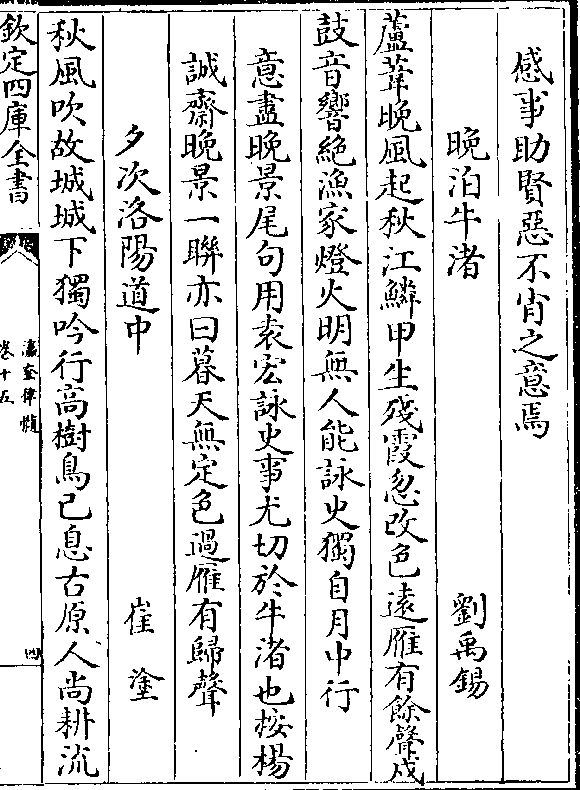 感事助賢惡不肖之意焉
晚泊牛渚　劉禹錫
蘆葦晚風起秋江鱗甲生殘霞忽改色遠雁有餘聲戍
鼓音響絶漁家燈火明無人能詠史獨自月中行
意盡晚景尾句用袁宏詠史事尤切於牛渚也桉楊
誠齋晚景一聯亦曰暮天無定色過雁有歸聲
夕次洛陽道中　崔塗
秋風吹故城城下獨吟行高樹鳥已息古原人尚耕流
欽定四庫全書
瀛奎律髓
卷十五
四